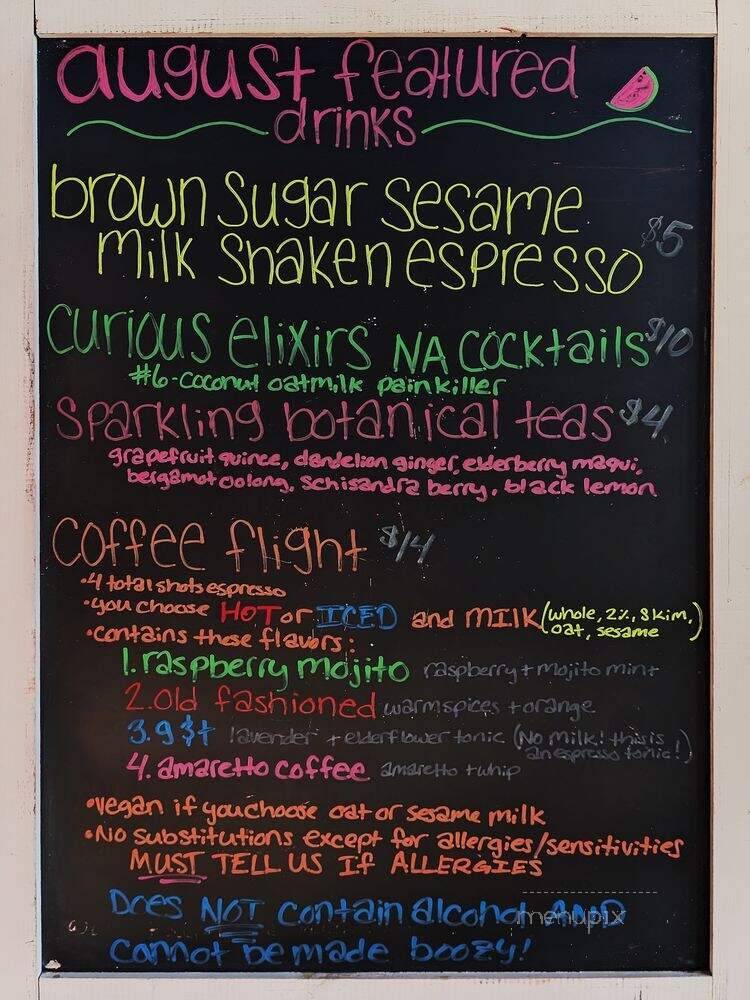 august featured
drinks
brown sugar sesame
milk shaken espresso $5
curious elixirs NA cocktails $10
#6-coconut oatmilk painkiller
sparkling botanical teas $4
grapefruit quince, dandelion ginger, elderberry maqui,
bergamot oolong, schisandra berry, black lemon
coffee flight $14
•4 total shots espresso
•you choose HOT or ICED and MILK (whole, 2%, skim,
oat, sesame)
•contains these flavors:
1. raspberry mojito raspberry + mojito mint
2. old fashioned warm spices + orange
3. 9 $t lavender + elderflower tonic (No milk! this is
an espresso tonic!)
4. amaretto coffee amaretto + whip
•vegan if you choose oat or sesame milk
•No substitutions except for allergies/sensitivities
MUST TELL US If ALLERGIES
Does NOT contain alcohol AND
cannot be made boozy!
menupix